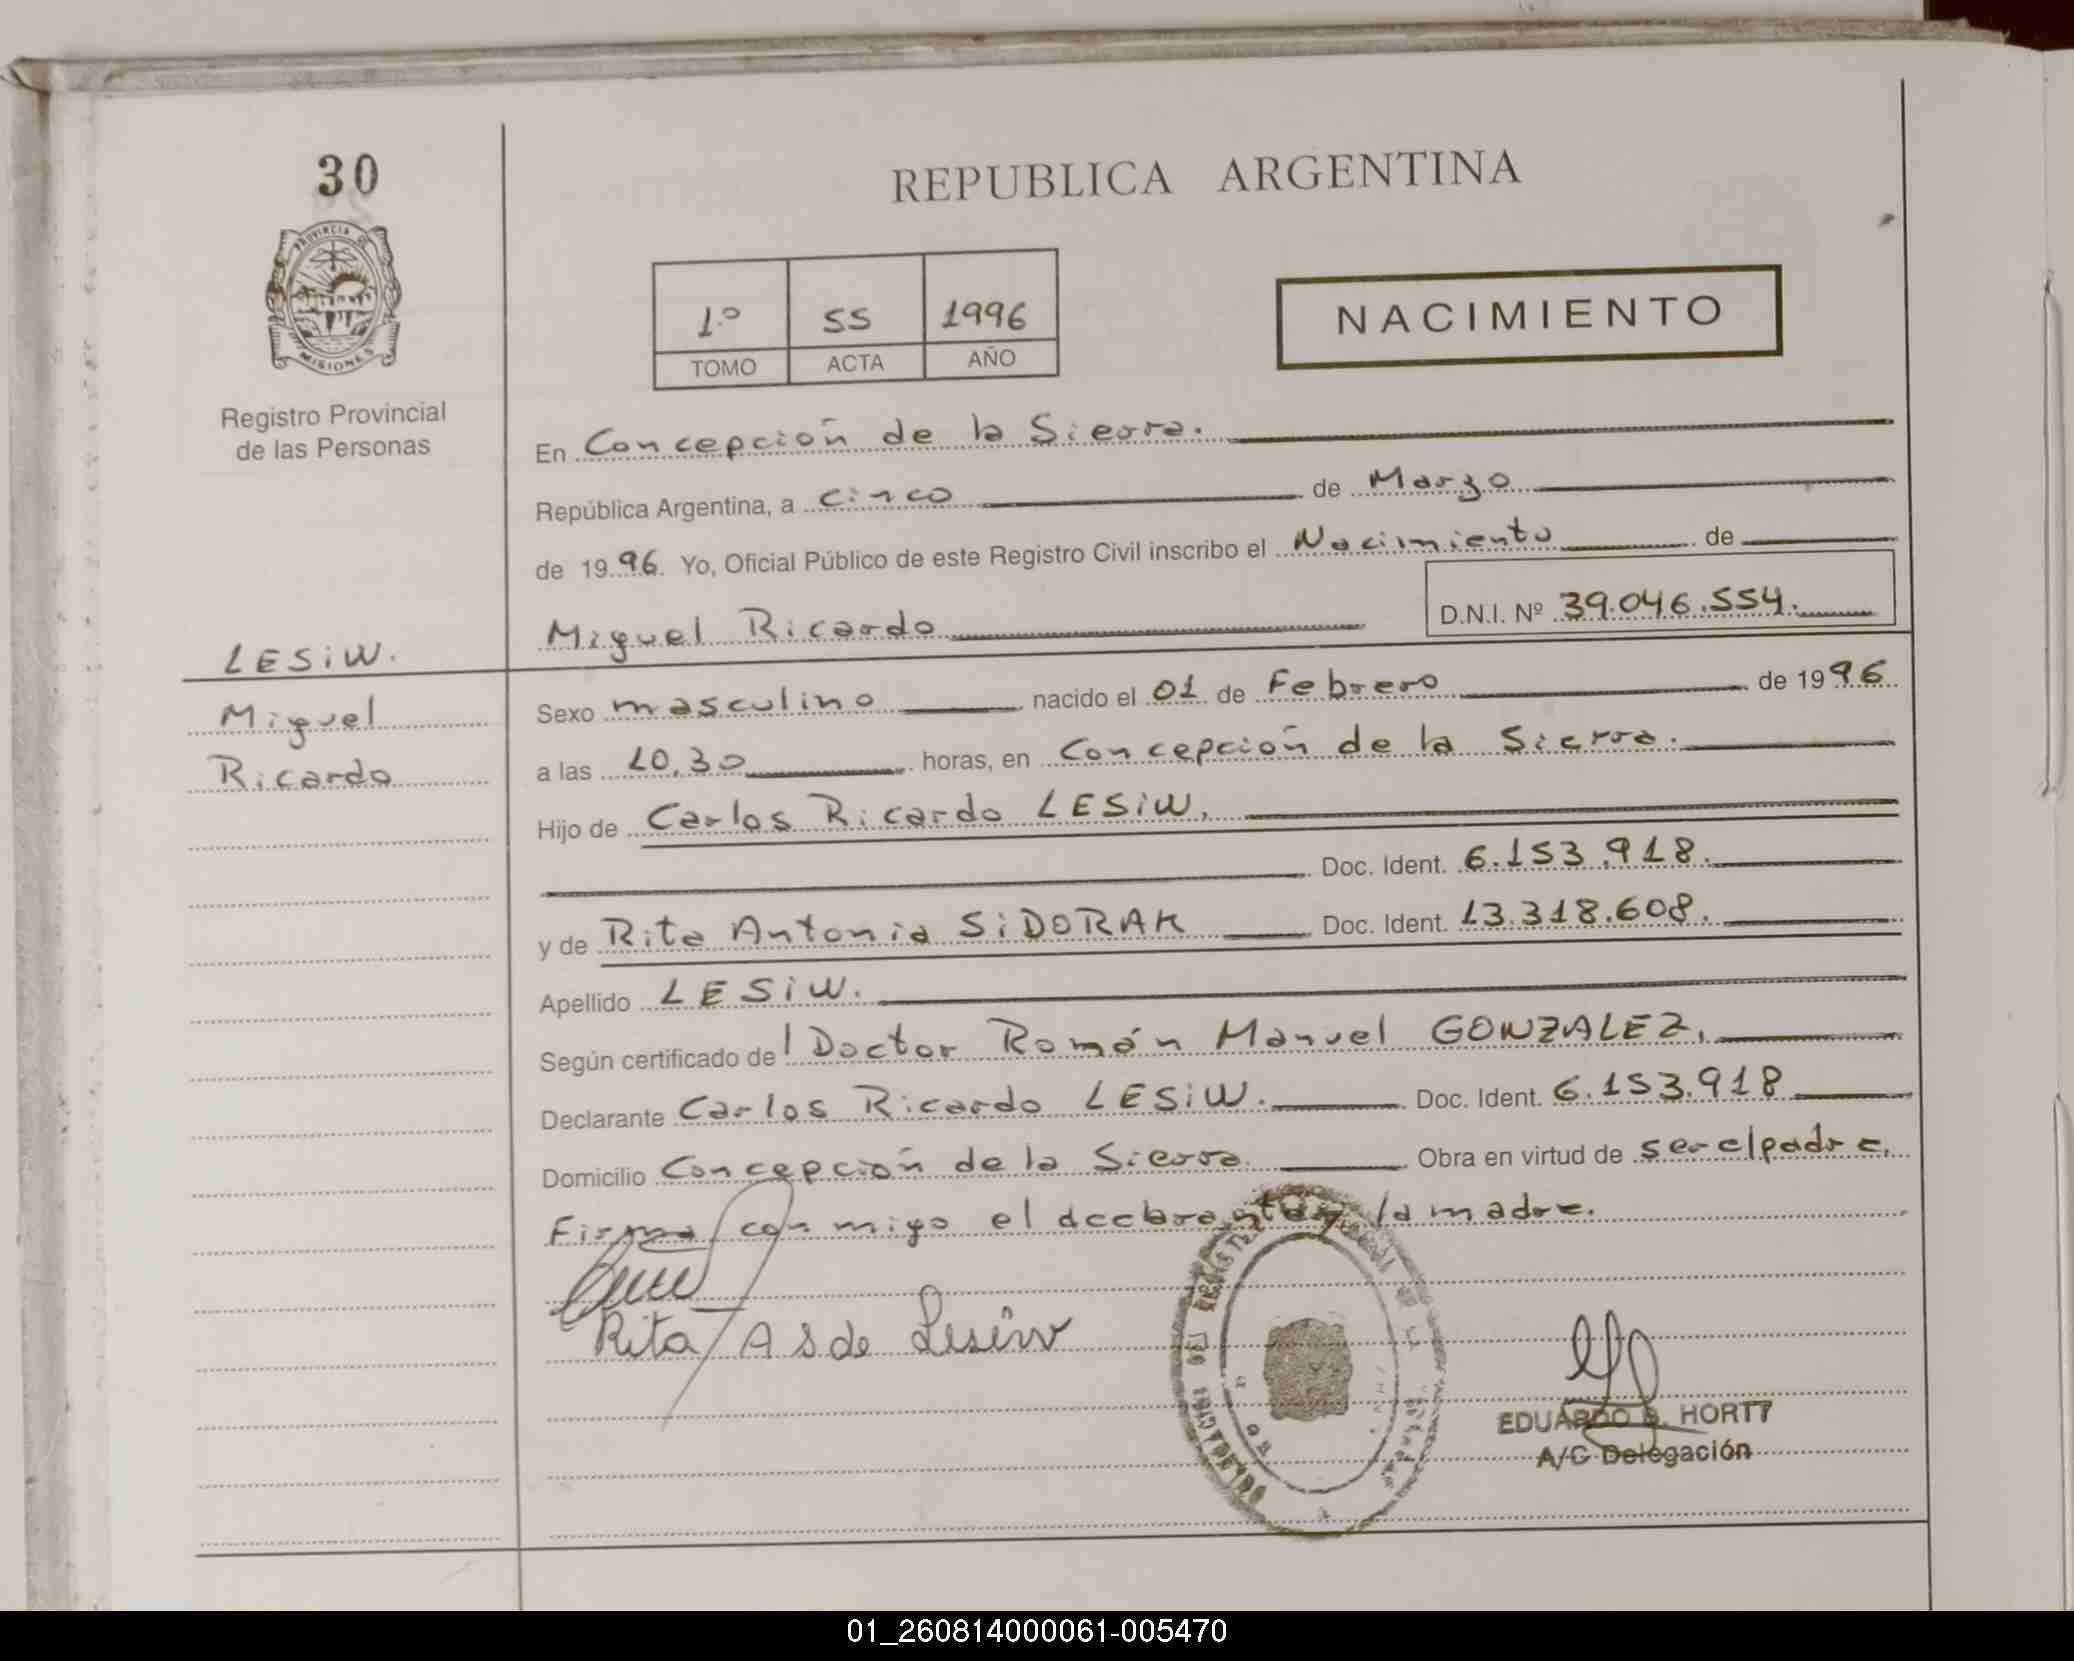 30
REPUBLICA ARGENTINA
PROVINCIA DE
MISIONES
Registro Provincial
de las Personas
1º 55 1996
TOMO ACTA AÑO
NACIMIENTO
En Concepción de la Sierra.
República Argentina, a cinco de Marzo
de 1996. Yo, Oficial Público de este Registro Civil inscribo el Nacimiento de
Miguel Ricardo D.N.I. Nº 39.046.554.
LESiW.
Miguel
Ricardo
Sexo masculino nacido el 01 de Febrero de 1996
a las 10.30 horas, en Concepción de la Sierra.
Hijo de Carlos Ricardo LESiW,
Doc. Ident. 6.153.918.
y de Rita Antonia SiDORAK Doc. Ident. 13.318.608.
Apellido LESiW.
Según certificado del Doctor Román Manuel GONZALEZ,
Declarante Carlos Ricardo LESiW. Doc. Ident. 6.153.918
Domicilio Concepción de la Sierra. Obra en virtud de ser el padre.
Firma con migo el declarante y la madre.
Rita A S de Lesiw
EDUARDO HORTT
A/C Delegación
01_260814000061-005470